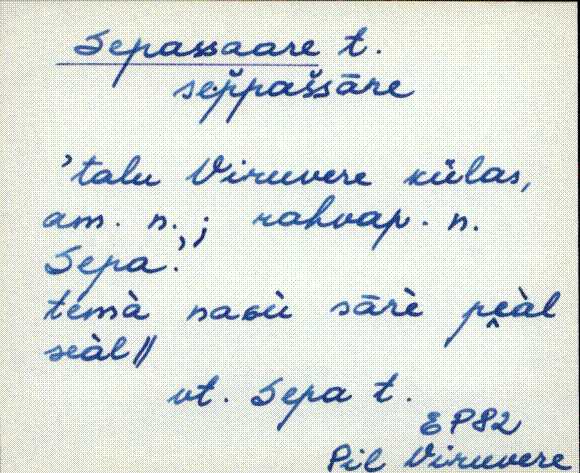 Sepassaare t.
sep̆pas̆sāre
’talu Viruvere külas,
am. n.; rahvap. n.
Sepa’.
temà nasù sārè peàl
seàl ||
vt. Sepa t.
EP82
Pil Viruvere